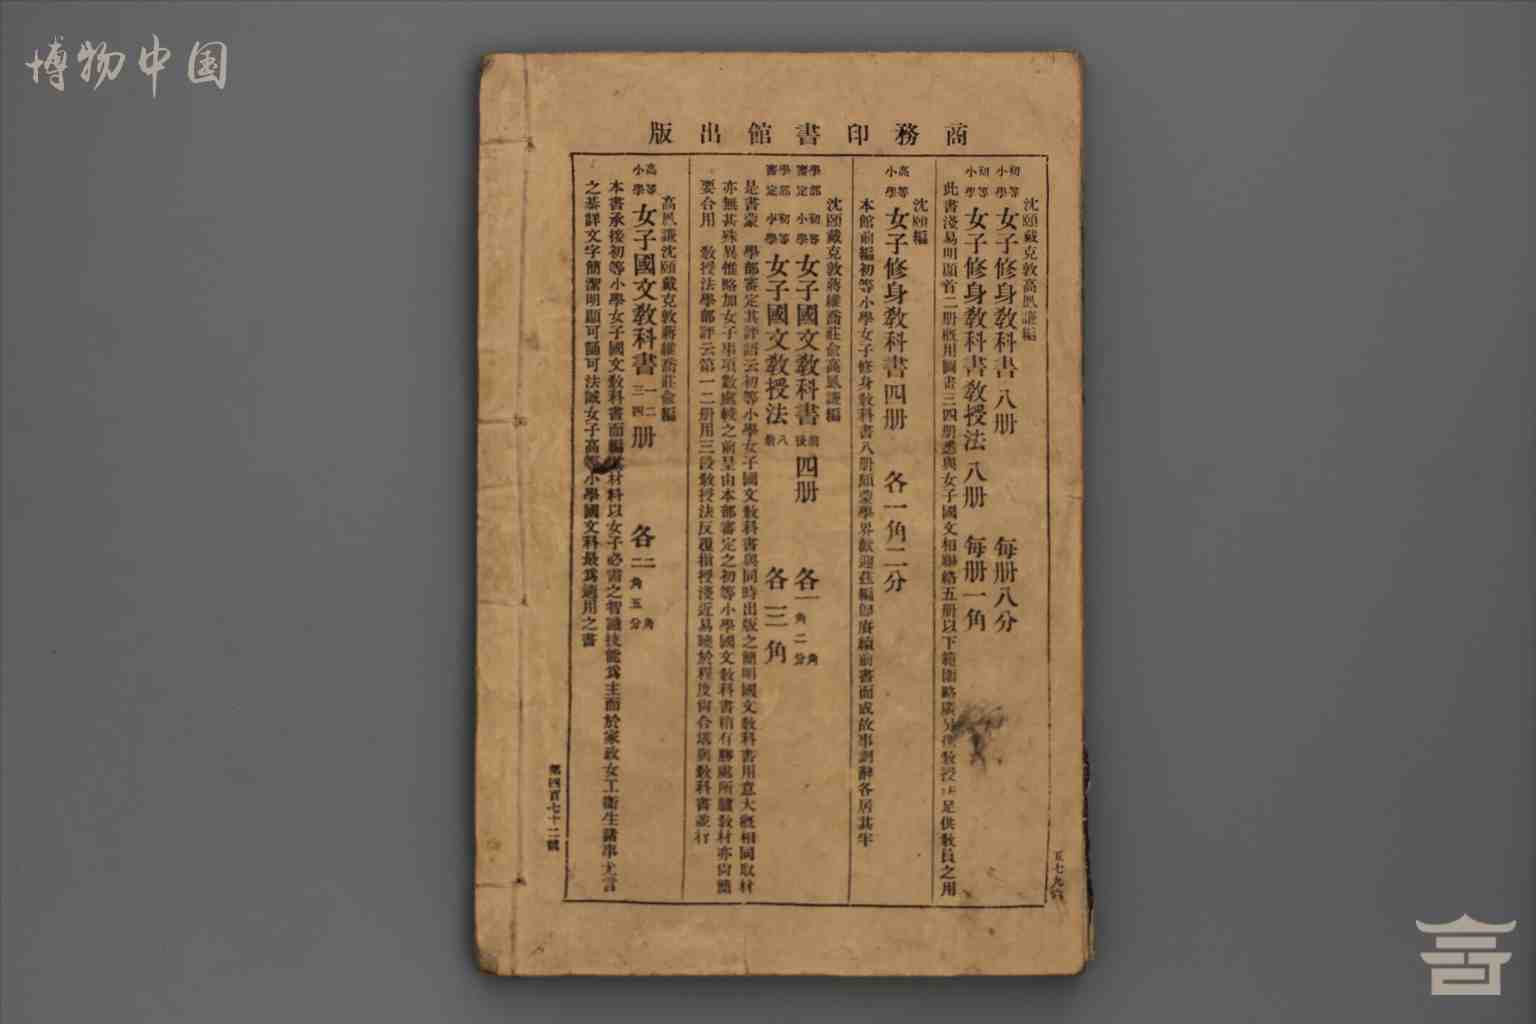 博物中国
商務印書館出版
沈頤戴克敦高鳳謙編
初等小學 女子修身教科書 八册 每册八分
初等小學 女子修身教科書教授法 八册 每册一角
此書淺易明顯首二册概用圖畫三四册悉與女子國文相聯絡五册以下範圍略廣另有教授法足供教員之用
沈頤編
高等小學 女子修身教科書四册 各一角二分
本館前編初等小學女子修身教科書八册頗蒙學界歡迎茲編即賡續前書而成故事訓辭各居其半
沈頤戴克敦蔣維喬莊俞高鳳謙編
學部審定 初等小學 女子國文教科書 前後四册 各一角二分 角
學部審定 初等小學 女子國文教授法 八册 各三角
是書蒙 學部審定其評語云初等小學女子國文教科書與同時出版之簡明國文教科書用意大概相同取材
亦無甚殊異惟略加女子事項數處較之前呈由本部審定之初等小學國文教科書稍有勝處所臚教材亦尚簡
要合用 教授法學部評云第一二册用三段教授法反覆指授淺近易曉於程度尚合堪與教科書並行
高鳳謙沈頤戴克敦蔣維喬莊俞編
高等小學 女子國文教科書 一二三四册 各二角二角五分
本書承接初等小學女子國文教科書而編其材料以女子必需之智識技能爲主而於家政女工衛生諸事尤言
之綦詳文字簡潔明顯可誦可法誠女子高等小學國文科最爲適用之書
第四百七十二號
五七九六